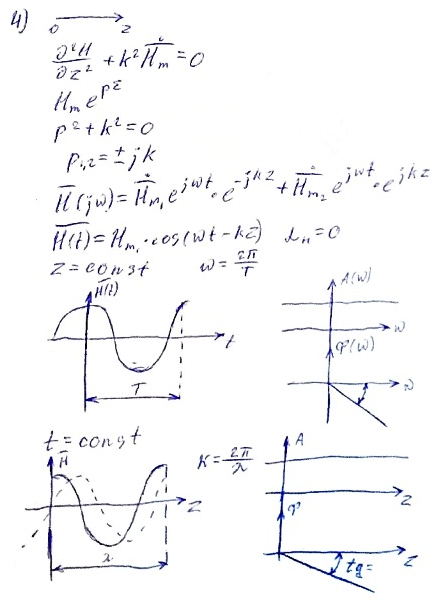 4)
0 z
∂²H/∂z² + k²Ḣm = 0
Hm e^pz
p² + k² = 0
p1,2 = ± jk
H̄(jω) = Ḣm1 e^jωt · e^-jkz + Ḣm2 e^jωt · e^jkz
H̄(t) = Hm1 · cos(ωt - kz) λn = 0
z = const ω = 2π/T
H̄(t) A(ω)
ω
φ(ω)
t ω
T
t = const
H̄ K = 2π/λ A
z z
φ
λ tg= z